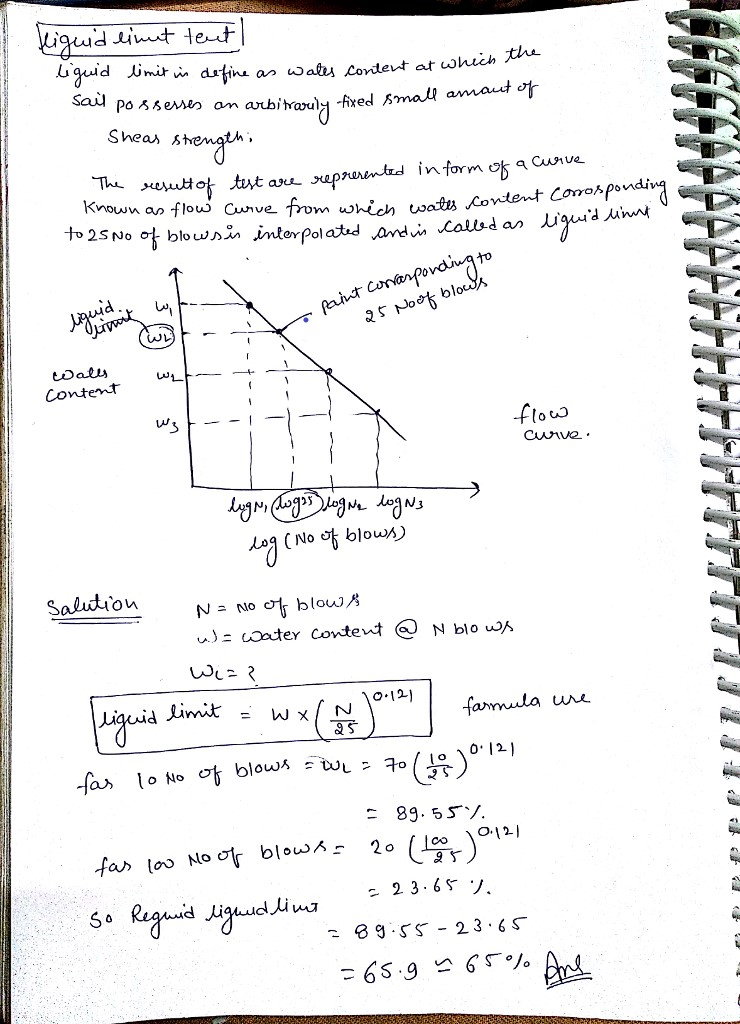 liquid limit test
liquid limit is define as water content at which the
soil possesses an arbitrarily fixed small amount of
Shear strength.
The result of test are represented in form of a curve
Known as flow curve from which water content corrosponding
to 25 No of blows is interpolated and is called as liquid limit
liquid limit
W1
WL
W2
W3
Water Content
point corrosponding to
25 No of blows
flow
curve.
logN1 log25 logN2 logN3
log (No of blows)
Solution
N = No of blows
W = Water content @ N blows
WL = ?
liquid limit = W × (N/25)^0.121
formula use
for 10 No of blows = WL = 70 (10/25)^0.121
= 89.55%
for 100 No of blows = 20 (100/25)^0.121
= 23.65 %
So Requid liquid limit
= 89.55 - 23.65
= 65.9 ≃ 65% Ans